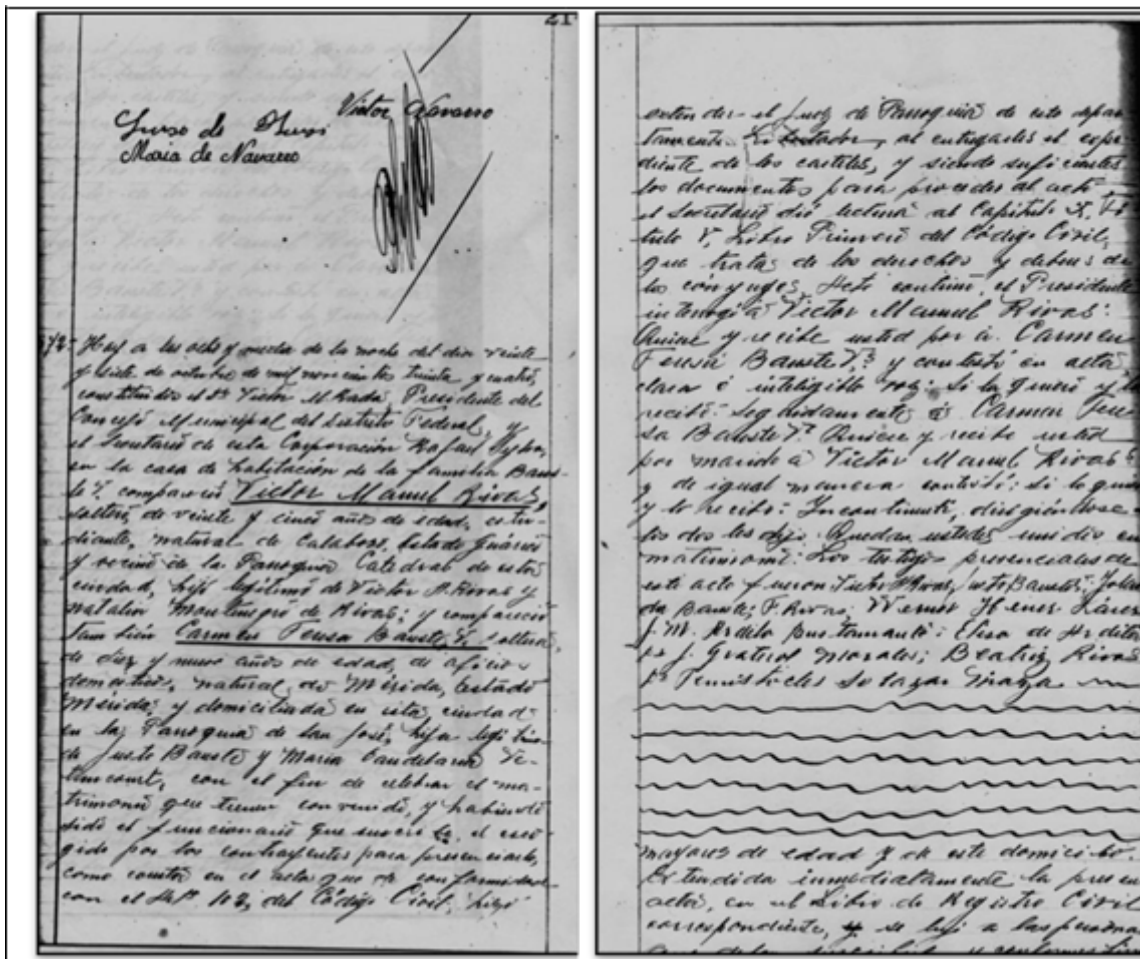 21
Victor Navarro
Luiso de
Maria de Navarro
572- Hoy a las ocho y media de la noche del dia veinte
y siete de octubre de mil novecientos treinta y cuatro,
constituidos el Dr Victor M. Rada, Presidente del
Concejo Municipal del Distrito Federal, y
el Secretario de esta Corporación Rafael
en la casa de habitación de la familia Baus-
te T. compareció Victor Manuel Rivas,
soltero, de veinte y cinco años de edad, estu-
diante, natural de Calabozo, Estado Guárico
y vecino de la Parroquia Catedral de esta
ciudad, hijo legítimo de Victor P. Rivas y
Natalia Montenegro de Rivas; y compareció
tambien Carmen Teresa Bauste T. soltera,
de diez y nueve años de edad, de oficios
domésticos, natural de Mérida, Estado
Mérida; y domiciliada en esta ciudad
en la Parroquia de San José, hija legítima
de Justo Bauste y Maria Candelaria
con el fin de celebrar el ma-
trimonio que tienen convenido, y habiendo
sido el funcionario que suscribe, el esco-
gido por los contrayentes para presenciarlo,
como consta en el acta que de conformidad
con el Artº 102, del Código Civil, hizo
extender el Juez de Parroquia de este depar-
tamento al entregarles el expe-
diente de los carteles, y siendo suficientes
los documentos para proceder al acto
el Secretario dió lectura al Capítulo X, Tí
tulo V, Libro Primero del Código Civil,
que trata de los derechos y deberes de
los cónyuges. Acto continuo, el Presidente
interrogó á Victor Manuel Rivas:
Quiere y recibe usted por a Carmen
Teresa Bauste T.? y contestó en alta,
clara é inteligible voz: Si la quiero y la
recibo: Seguidamente á Carmen Tere-
sa Bauste T. Quiere y recibe usted
por marido á Victor Manuel Rivas?
y de igual manera contestó: Si lo quiero
y lo recibo: Incontinenti, dirigiéndose
los dos les dijo: Quedan ustedes unidos en
matrimonio. Los testigos presenciales de
este acto fueron Victor P. Rivas, Justo Bauste;
da Bauste; F. Rivas; Werner
J. M. Ardila Bustamante; Elisa de Ardila
J. Graterol Morales; Beatriz Rivas
Temistocles Salazar Maza
mayores de edad y de este domicilio.
Extendida inmediatamente la presente
acta, en el Libro de Registro Civil
correspondiente, y se leyó a las personas
que deben suscribirla y conformes firman